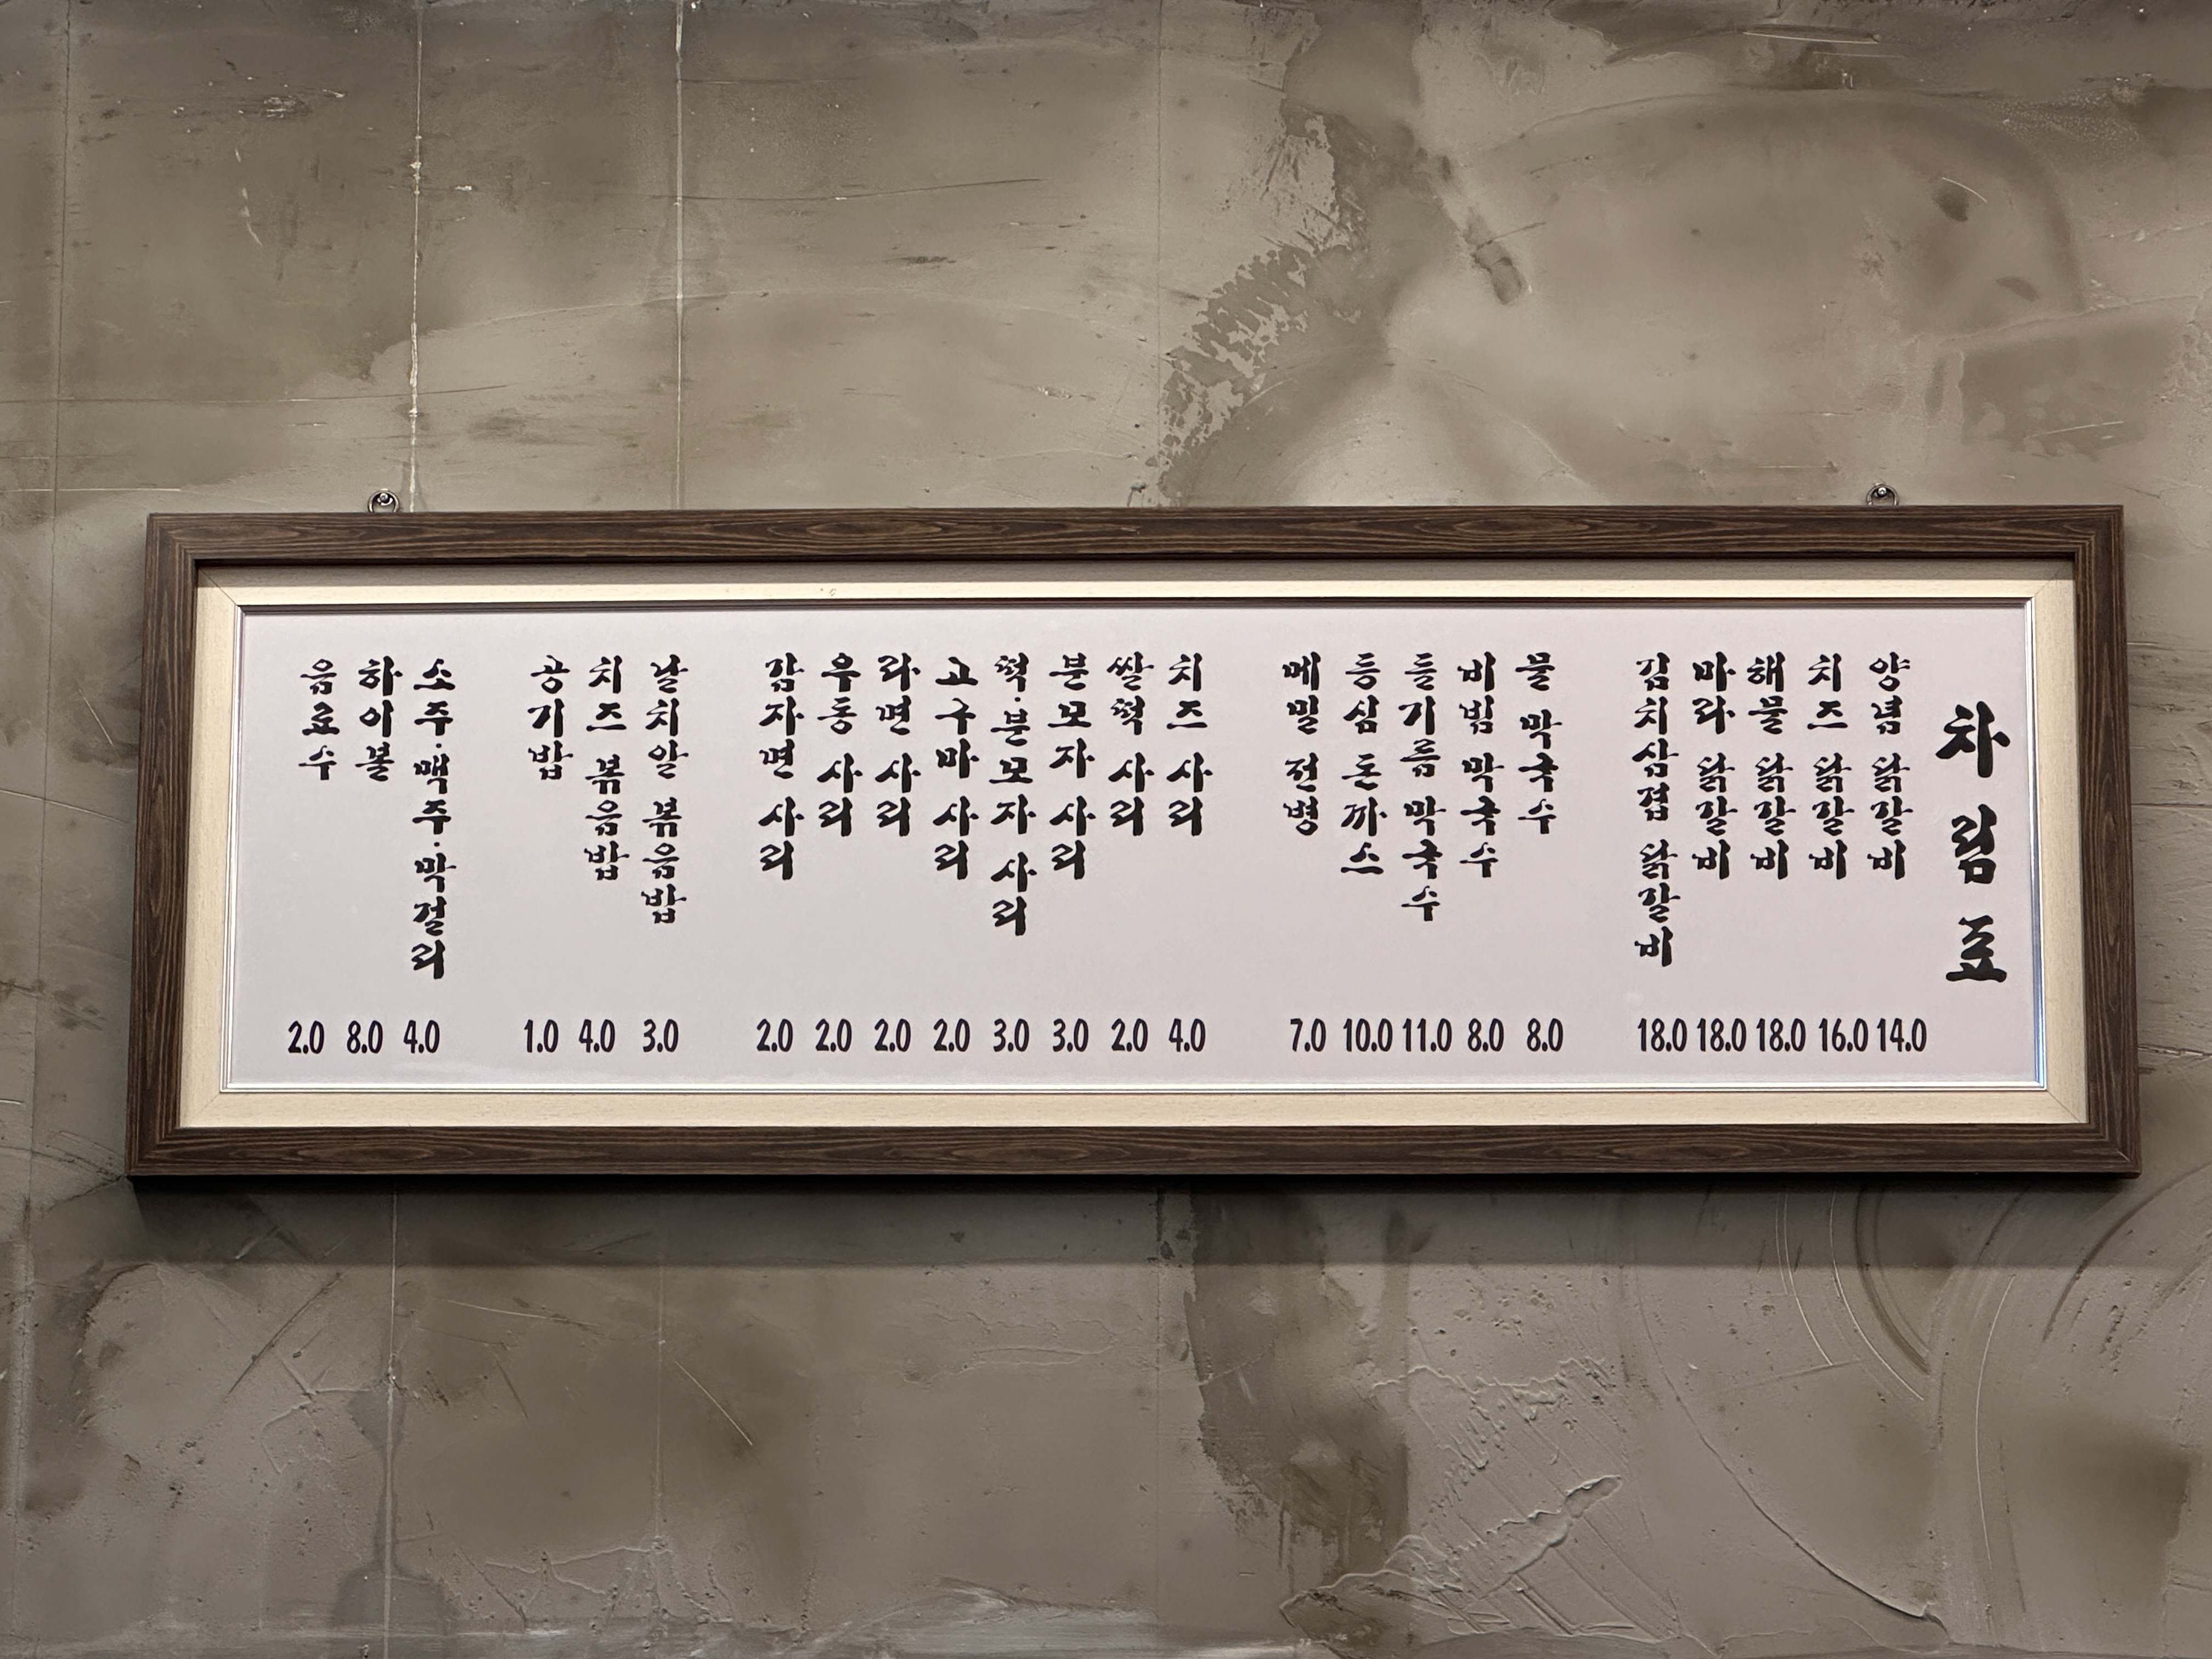 차림표
양념 닭갈비 14.0
치즈 닭갈비 16.0
해물 닭갈비 18.0
마라 닭갈비 18.0
김치삼겹 닭갈비 18.0
물 막국수 8.0
비빔 막국수 8.0
들기름 막국수 11.0
등심 돈까스 10.0
메밀 전병 7.0
치즈 사리 4.0
쌀떡 사리 2.0
분모자 사리 3.0
떡·분모자 사리 3.0
고구마 사리 2.0
라면 사리 2.0
우동 사리 2.0
감자면 사리 2.0
날치알 볶음밥 3.0
치즈 볶음밥 4.0
공기밥 1.0
소주·맥주·막걸리 4.0
하이볼 8.0
음료수 2.0